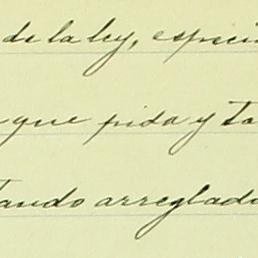 de la ley, especi
que pida y ta
tando arreglad